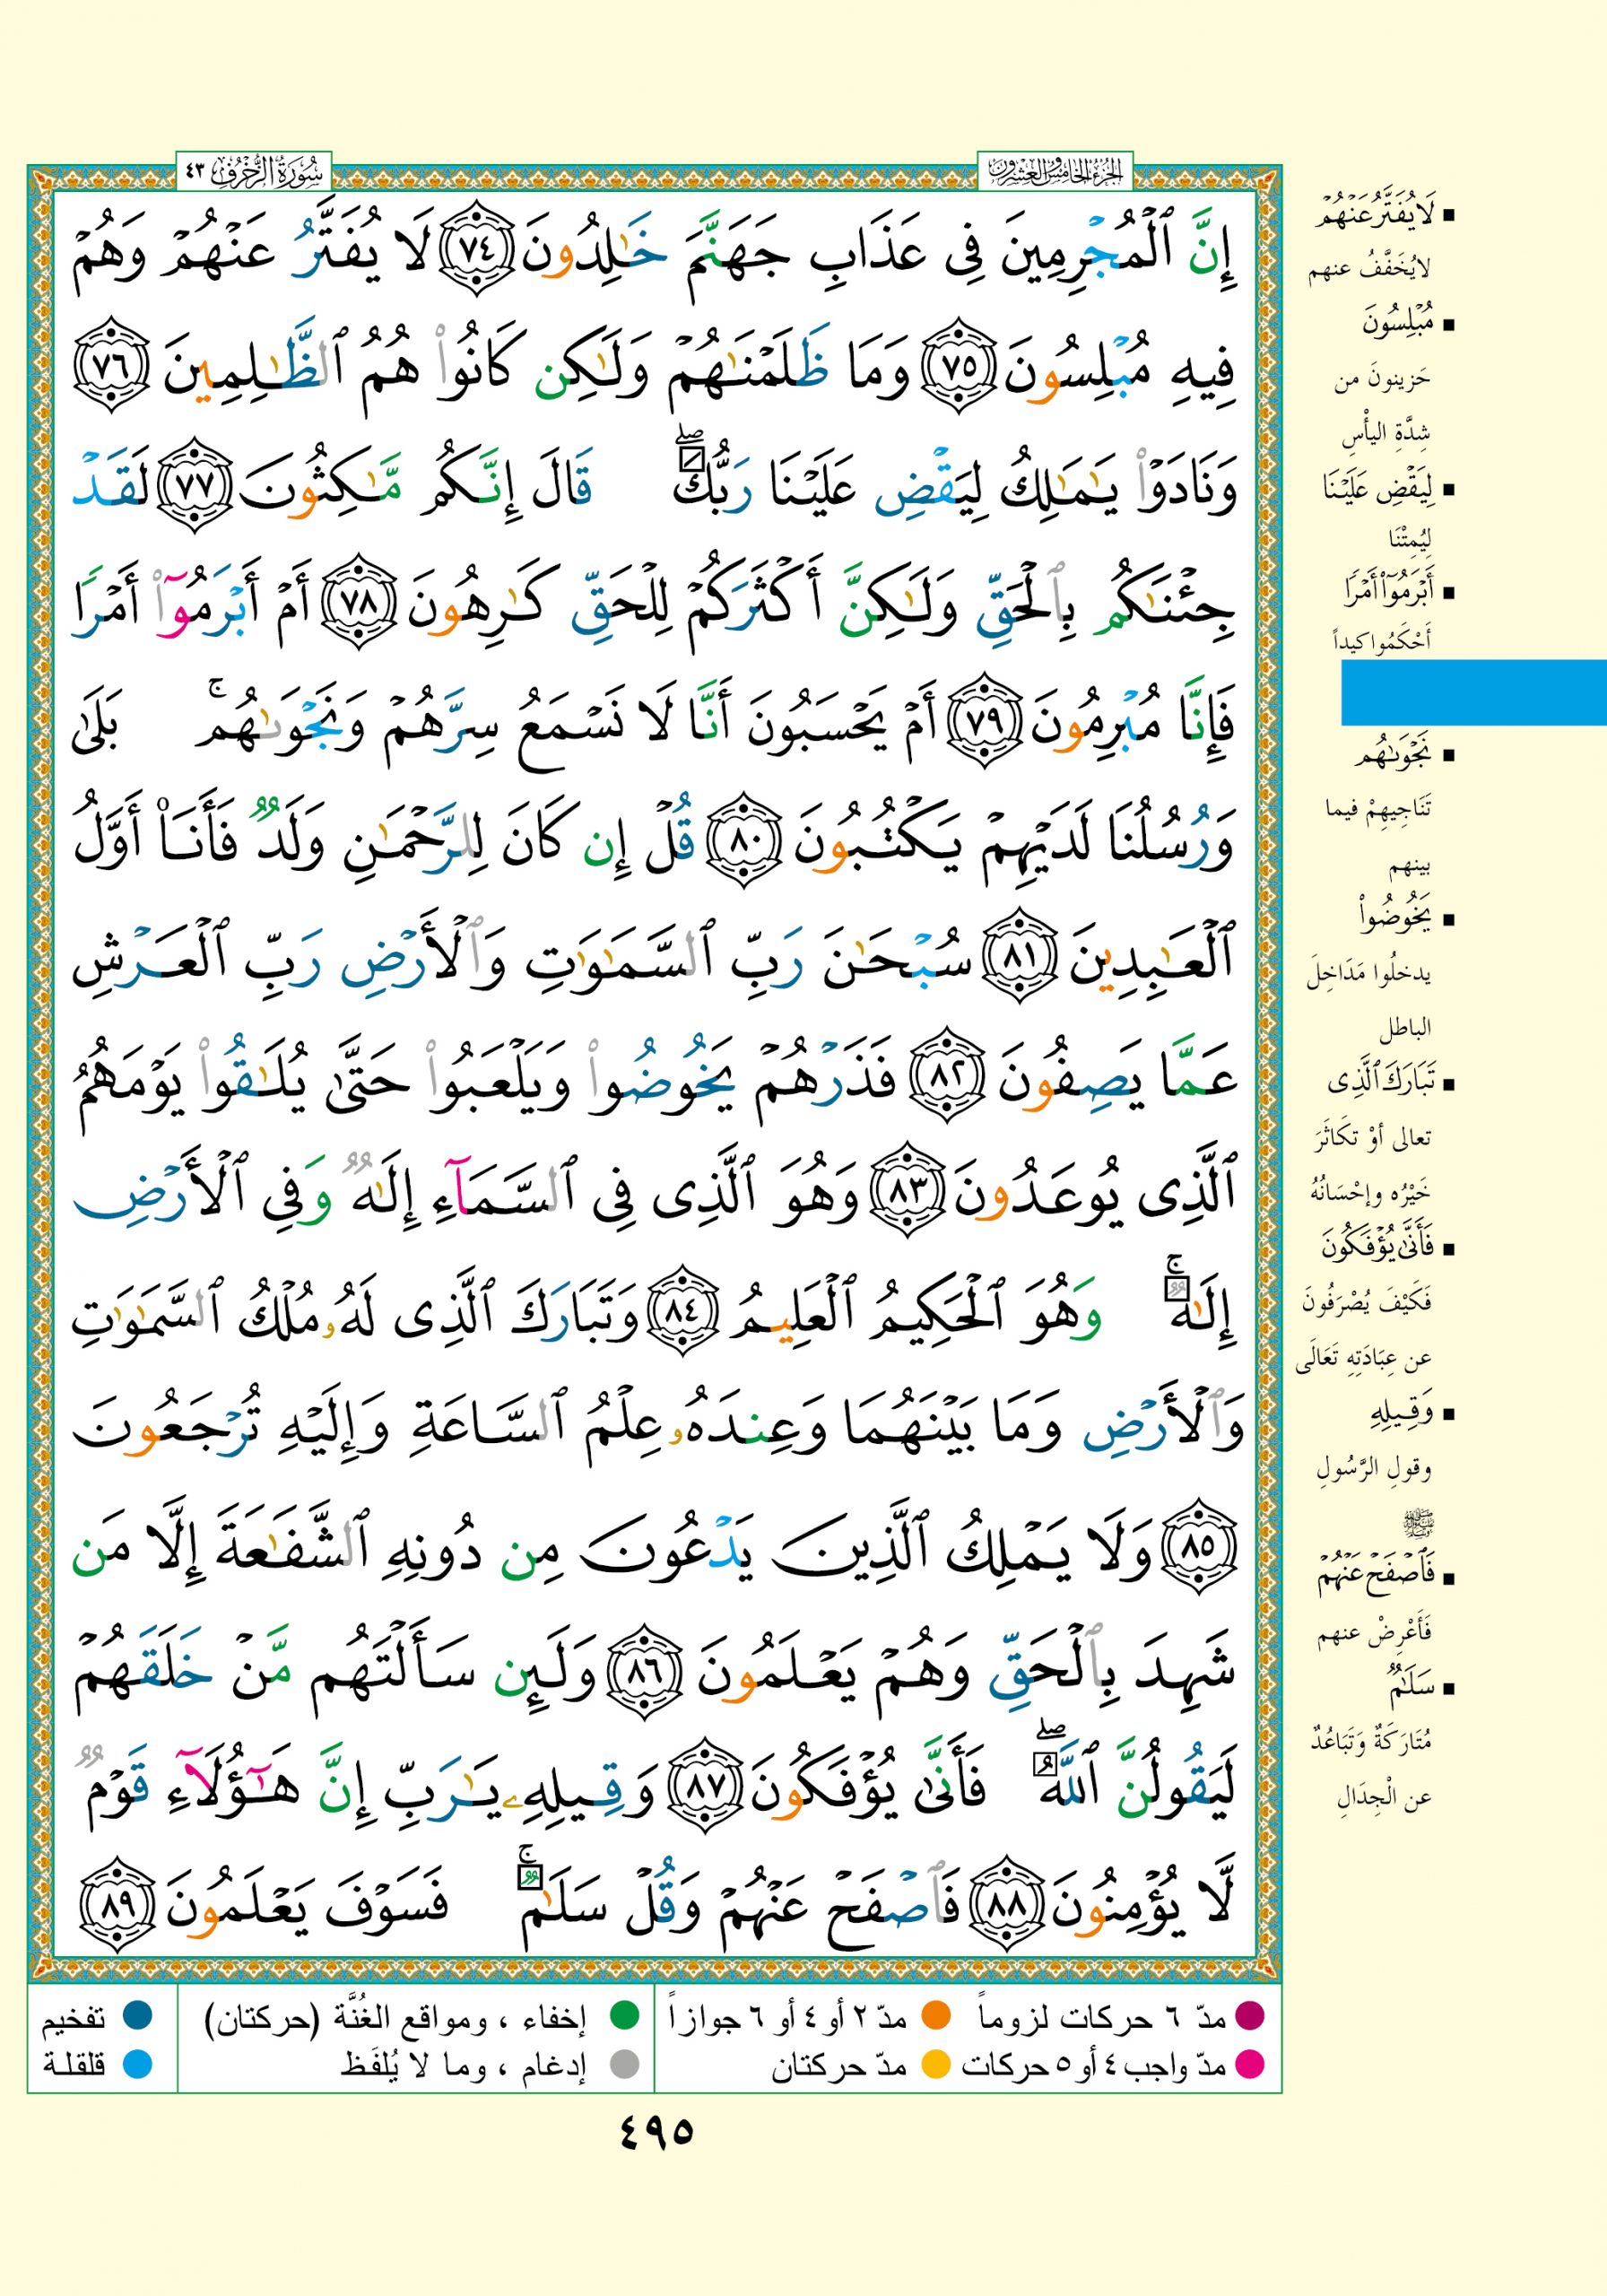 الجزء الخامس والعشرون
سورة الزخرف ٤٣
إِنَّ ٱلْمُجْرِمِينَ فِى عَذَابِ جَهَنَّمَ خَٰلِدُونَ ٧٤ لَا يُفَتَّرُ عَنْهُمْ وَهُمْ
فِيهِ مُبْلِسُونَ ٧٥ وَمَا ظَلَمْنَٰهُمْ وَلَٰكِن كَانُوا۟ هُمُ ٱلظَّٰلِمِينَ ٧٦
وَنَادَوْا۟ يَٰمَٰلِكُ لِيَقْضِ عَلَيْنَا رَبُّكَ ۖ قَالَ إِنَّكُم مَّٰكِثُونَ ٧٧ لَقَدْ
جِئْنَٰكُم بِٱلْحَقِّ وَلَٰكِنَّ أَكْثَرَكُمْ لِلْحَقِّ كَٰرِهُونَ ٧٨ أَمْ أَبْرَمُوٓا۟ أَمْرًا
فَإِنَّا مُبْرِمُونَ ٧٩ أَمْ يَحْسَبُونَ أَنَّا لَا نَسْمَعُ سِرَّهُمْ وَنَجْوَىٰهُم ۚ بَلَىٰ
وَرُسُلُنَا لَدَيْهِمْ يَكْتُبُونَ ٨٠ قُلْ إِن كَانَ لِلرَّحْمَٰنِ وَلَدٌ فَأَنَا۠ أَوَّلُ
ٱلْعَٰبِدِينَ ٨١ سُبْحَٰنَ رَبِّ ٱلسَّمَٰوَٰتِ وَٱلْأَرْضِ رَبِّ ٱلْعَرْشِ
عَمَّا يَصِفُونَ ٨٢ فَذَرْهُمْ يَخُوضُوا۟ وَيَلْعَبُوا۟ حَتَّىٰ يُلَٰقُوا۟ يَوْمَهُمُ
ٱلَّذِى يُوعَدُونَ ٨٣ وَهُوَ ٱلَّذِى فِى ٱلسَّمَآءِ إِلَٰهٌ وَفِى ٱلْأَرْضِ
إِلَٰهٌ ۚ وَهُوَ ٱلْحَكِيمُ ٱلْعَلِيمُ ٨٤ وَتَبَارَكَ ٱلَّذِى لَهُۥ مُلْكُ ٱلسَّمَٰوَٰتِ
وَٱلْأَرْضِ وَمَا بَيْنَهُمَا وَعِندَهُۥ عِلْمُ ٱلسَّاعَةِ وَإِلَيْهِ تُرْجَعُونَ
٨٥ وَلَا يَمْلِكُ ٱلَّذِينَ يَدْعُونَ مِن دُونِهِ ٱلشَّفَٰعَةَ إِلَّا مَن
شَهِدَ بِٱلْحَقِّ وَهُمْ يَعْلَمُونَ ٨٦ وَلَئِن سَأَلْتَهُم مَّنْ خَلَقَهُمْ
لَيَقُولُنَّ ٱللَّهُ ۖ فَأَنَّىٰ يُؤْفَكُونَ ٨٧ وَقِيلِهِۦ يَٰرَبِّ إِنَّ هَٰٓؤُلَآءِ قَوْمٌ
لَّا يُؤْمِنُونَ ٨٨ فَٱصْفَحْ عَنْهُمْ وَقُلْ سَلَٰمٌ ۚ فَسَوْفَ يَعْلَمُونَ ٨٩
لَا يُفَتَّرُ عَنْهُمْ
لا يُخَفَّفُ عنهم
مُبْلِسُونَ
حَزينونَ من
شِدَّةِ اليأْسِ
لِيَقْضِ عَلَيْنَا
لِيُمِتْنَا
أَبْرَمُوٓا۟ أَمْرًا
أَحْكَمُوا كيداً
نَجْوَىٰهُم
تَنَاجِيهِمْ فيما
بينهم
يَخُوضُوا۟
يدخلُوا مَدَاخِلَ
الباطل
تَبَارَكَ ٱلَّذِى
تعالى أوْ تكَاثَرَ
خَيْرُه وإحْسَانُهُ
فَأَنَّىٰ يُؤْفَكُونَ
فَكَيْفَ يُصْرَفُونَ
عن عِبَادَتِهِ تَعَالَى
وَقِيلِهِ
وقولِ الرَّسُولِ
ﷺ
فَٱصْفَحْ عَنْهُمْ
فَأَعْرِضْ عنهم
سَلَٰمٌ
مُتَارَكَةٌ وَتَبَاعُدٌ
عن الْجِدَالِ
مدّ ٦ حركات لزوماً مدّ ٢ أو ٤ أو ٦ جوازاً إخفاء ، ومواقع الغُنَّة (حركتان) تفخيم
مدّ واجب ٤ أو ٥ حركات مدّ حركتان إدغام ، وما لا يُلفَظ قلقلة
٤٩٥